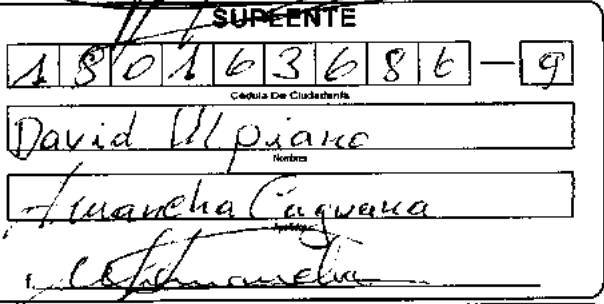 SUPLENTE
180163686-9
Cédula De Ciudadanía
David Ulpiano
Nombres
Amancha Caguana
Apellidos
f.